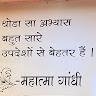 थोडा सा अभ्यास
बहुत सारे
उपदेशों से बेहतर हैं।
-महात्मा गांधी